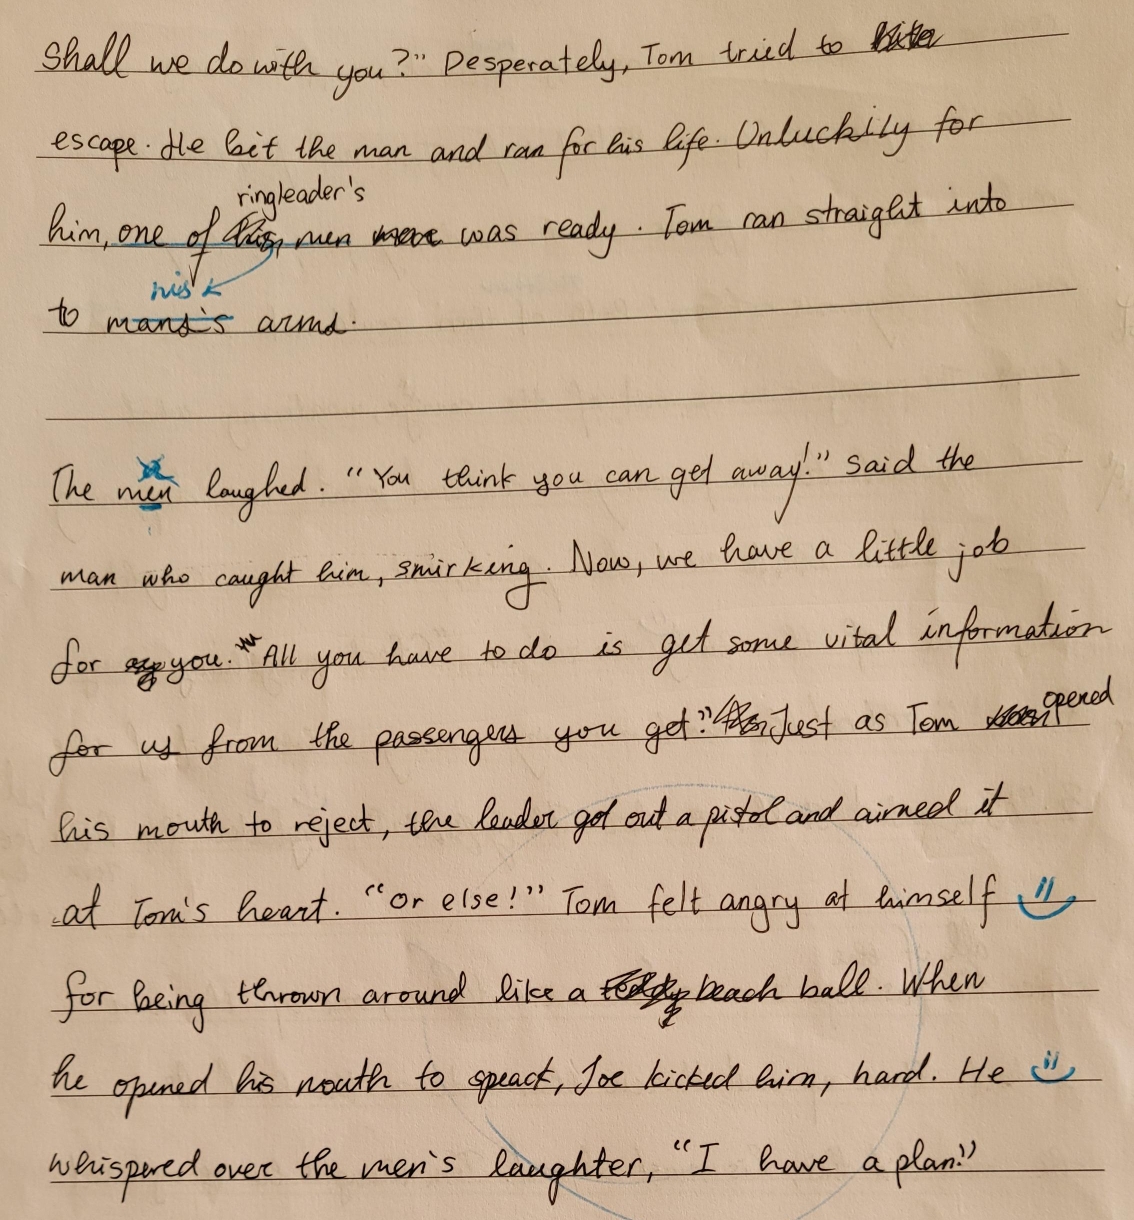 shall we do with you?" Desperately, Tom tried to
escape. He bit the man and ran for his life. Unluckily for
ringleader's
him, one of his men were was ready. Tom ran straight into
his
to mans's arms.
The men laughed. "You think you can get away!" said the
man who caught him, smirking. Now, we have a little job
for you. "All you have to do is get some vital information
for us from the passengers you get." Just as Tom opened
his mouth to reject, the leader got out a pistol and aimed it
at Tom's heart. "or else!" Tom felt angry at himself
for being thrown around like a beach ball. When
he opened his mouth to speack, Joe kicked him, hard. He
whispered over the men's laughter, "I have a plan!"